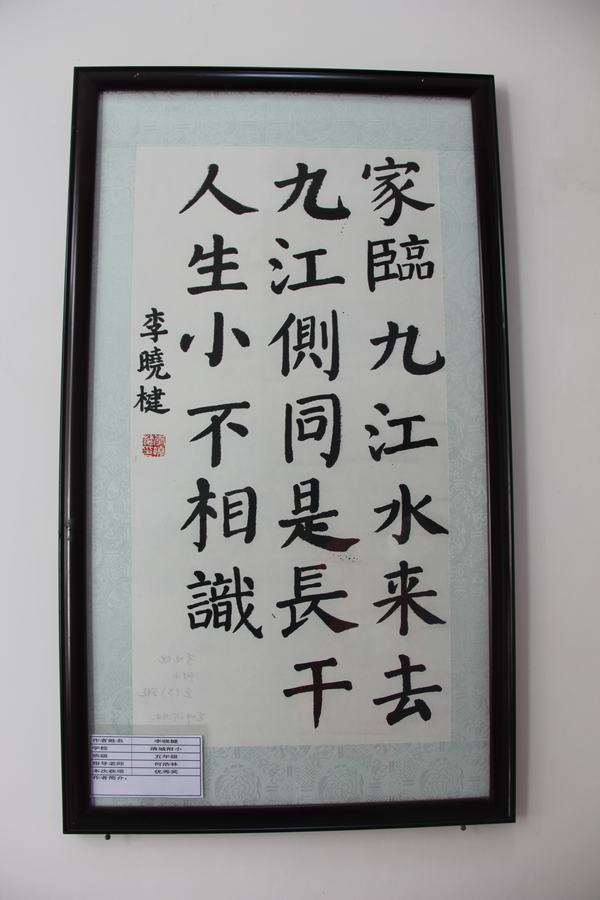 家臨九江水来去
九江側同是長干
人生小不相識
李曉楗
作者姓名 李晓楗
学校 清城附小
班级 五年级
指导老师 何浩林
本次获项 优秀奖
作者简介：